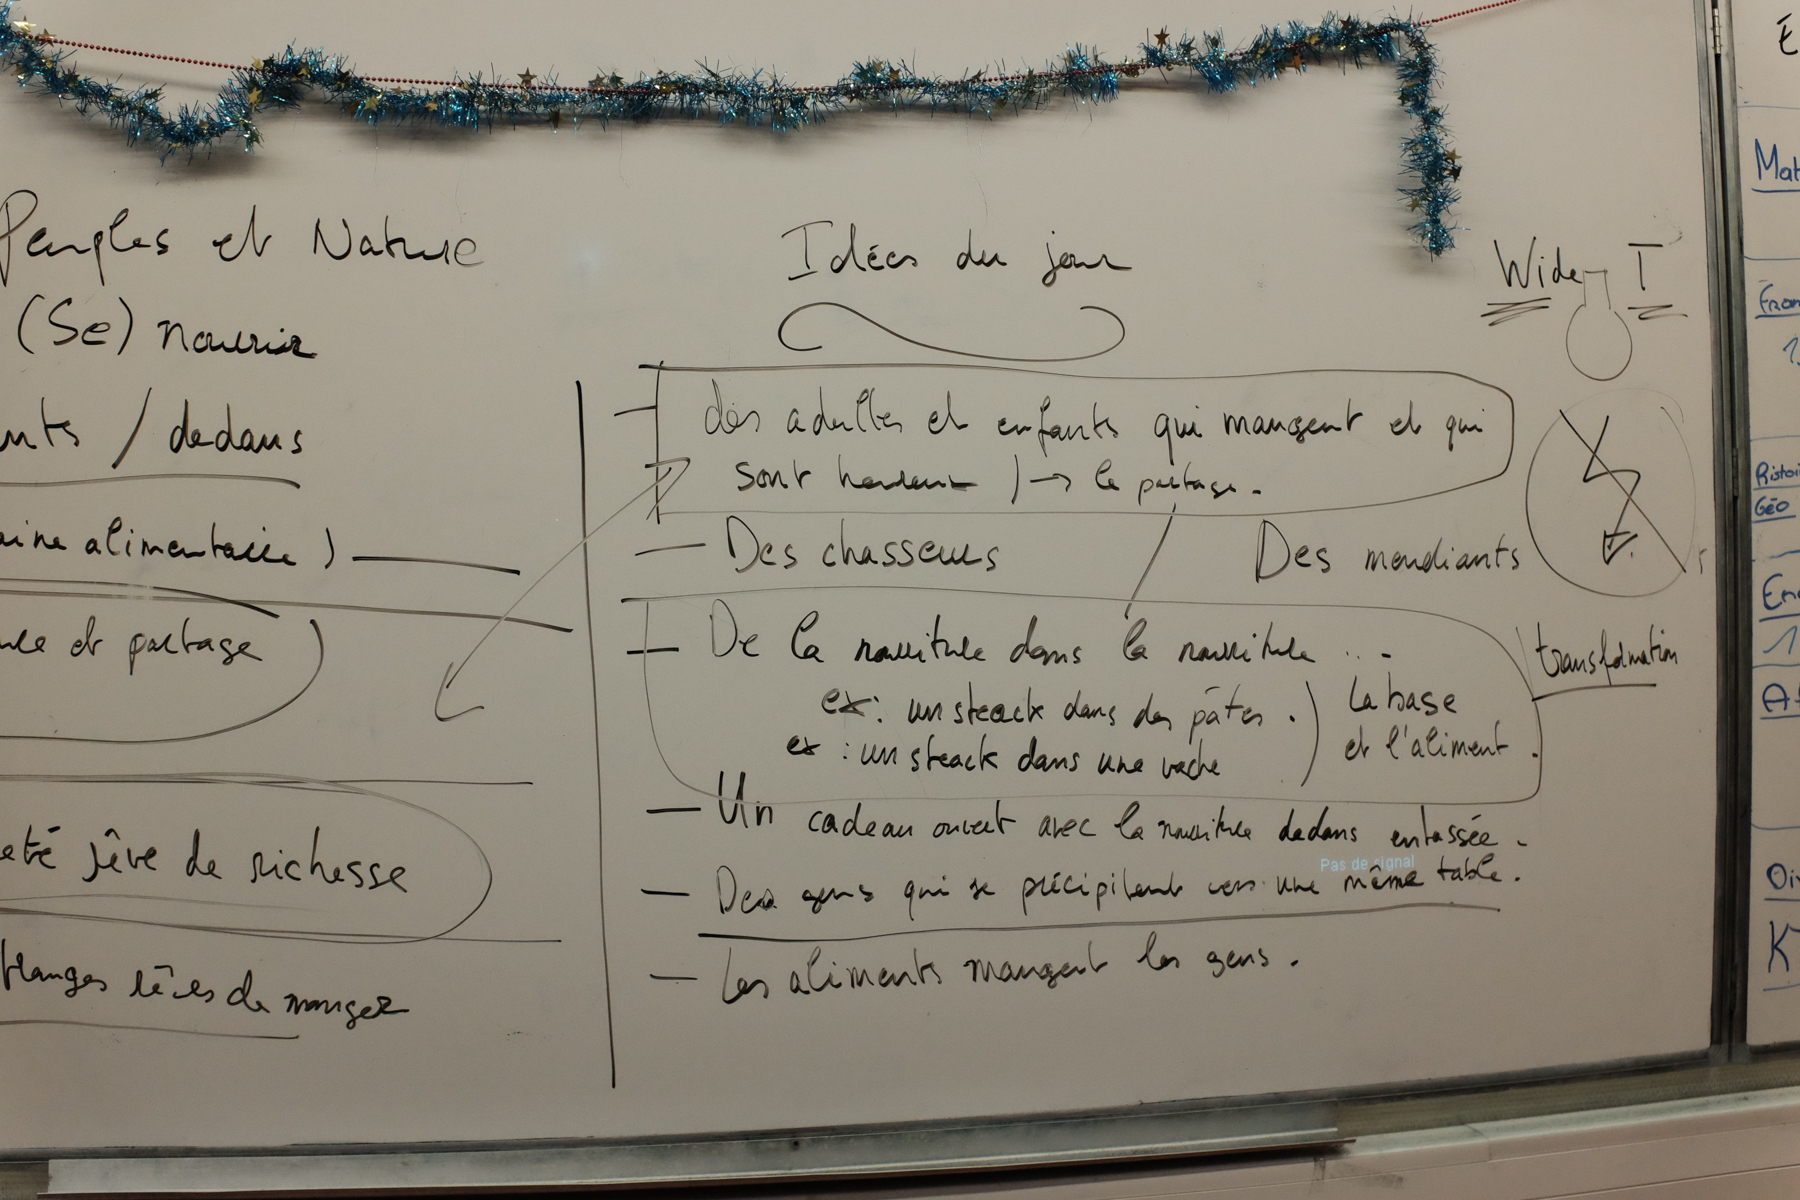 Peuples et Nature
(Se) nourrir
nts / dedans
aine alimentaire)
et partage
eté rêve de richesse
langes de manger
Idées du jour
des adultes et enfants qui mangent et qui
sont heureux ) → le partage.
Des chasseurs Des mendiants
De la nourriture dans la nourriture ...
ex: un steack dans des pâtes.
ex: un steack dans une vache
) la base
et l'aliment.
transformation
Un cadeau ouvert avec la nourriture dedans entassée.
Pas de signal
Des gens qui se précipitent vers une même table.
Les aliments mangent les gens.
Wide T
E
Mat
Fran
Histoi
Géo
En
1
A
Di
K